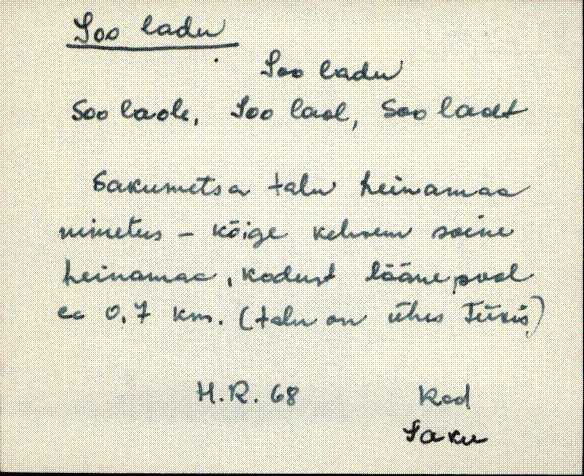 Soo ladu
Soo ladu
Soo laole, Soo laol, Soo ladt
Sakumetsa talu heinamaa
nimetus – kõige kehvem soine
heinamaa, kodust lääne pool
ca 0,7 km. (talu on ühes Tüxis)
H.R. 68 Kod
Saku